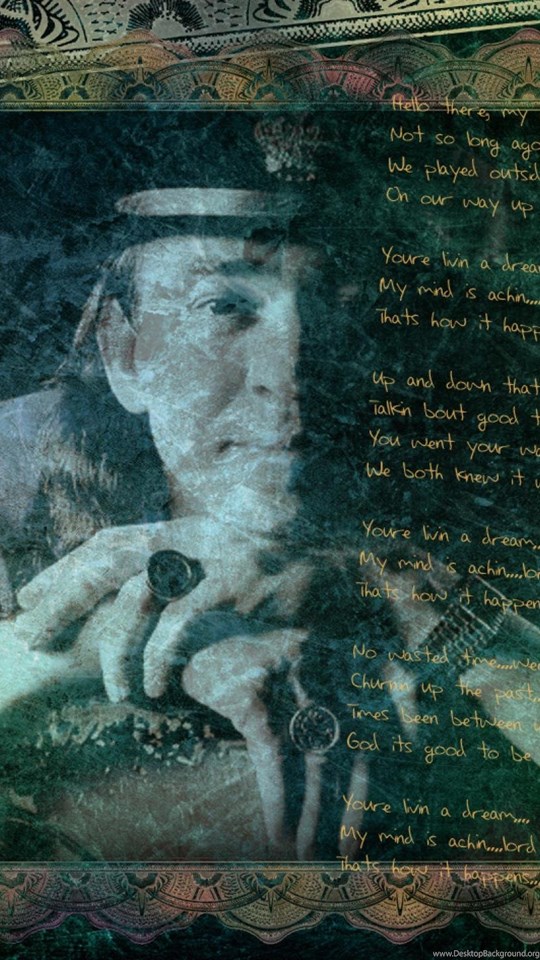 Hello there, my
Not so long ago
We played outsid
On our way up
Youre livin a drea
My mind is achin,,,,
Thats how it happ
Up and down that
Talkin bout good t
You went your wa
We both knew it w
Youre livin a dream,,,
My mind is achin,,,,lor
Thats how it happen
No wasted time,,,,,we
Churnin up the past,,,
Times been between u
God its good to be
Youre livin a dream,,,,
My mind is achin,,,,lord
Thats how it happens,,,
www.DesktopBackground.org